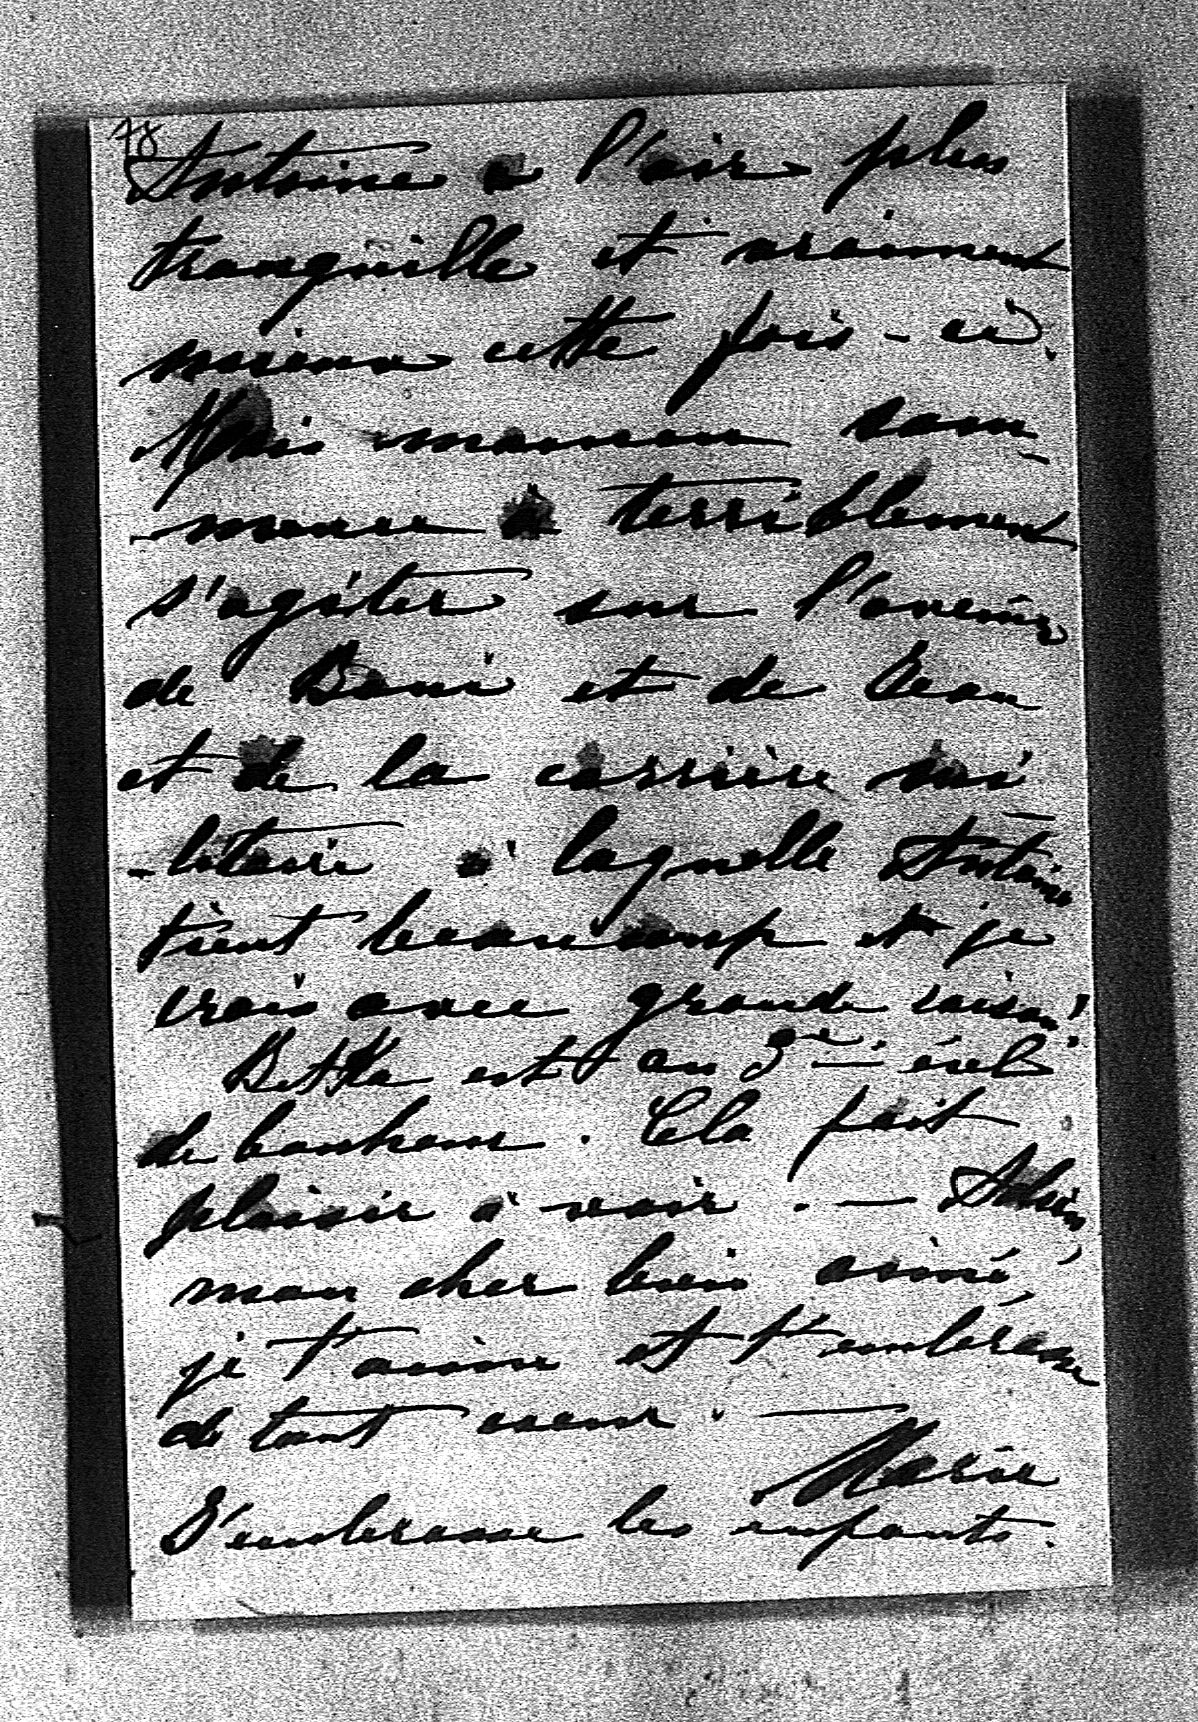 78
Antoine a l'air plus
tranquille et vraiment
mieux cette fois-ci.
Mais maman com-
-mence à terriblement
s'agiter sur l'avenir
de Boni et de Jean
et de la carrière mi-
-litaire à laquelle Antoine
tient beaucoup et je
crois avec grande raison!
Betka est au 3me ciel
de bonheur. Cela fait
plaisir à voir. — Adieu,
mon cher bien aimé,
je t'aime et t'embrasse
de tout cœur. —
Marie
J'embrasse les enfants.